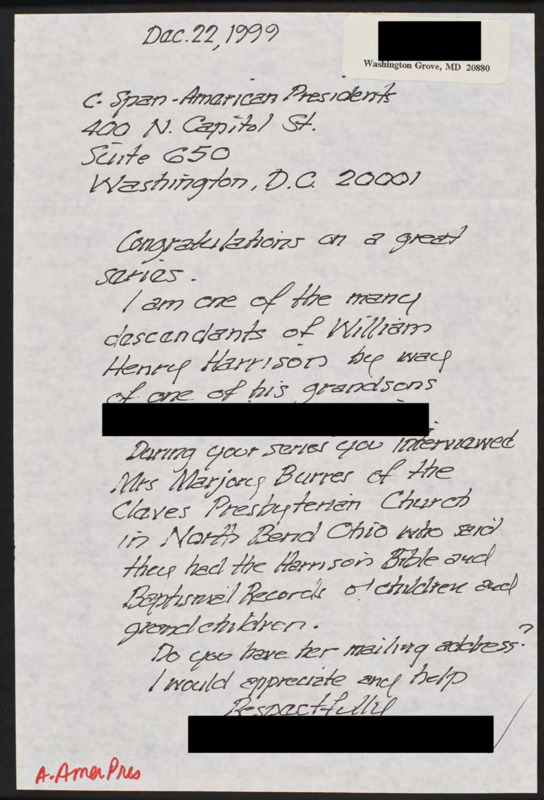 Dec. 22, 1999
Washington Grove, MD 20880
C-Span-American Presidents
400 N. Capitol St.
Suite 650
Washington, D.C. 20001
Congratulations on a great
series.
I am one of the many
descendants of William
Henry Harrison by way
of one of his grandsons
During your series you interviewed
Mrs Marjory Burres of the
Claves Presbyterian Church
in North Bend Ohio who said
they had the Harrison Bible and
Baptismal Records of children and
grandchildren.
Do you have her mailing address?
I would appreciate any help
Respectfully
A. Amer Pres